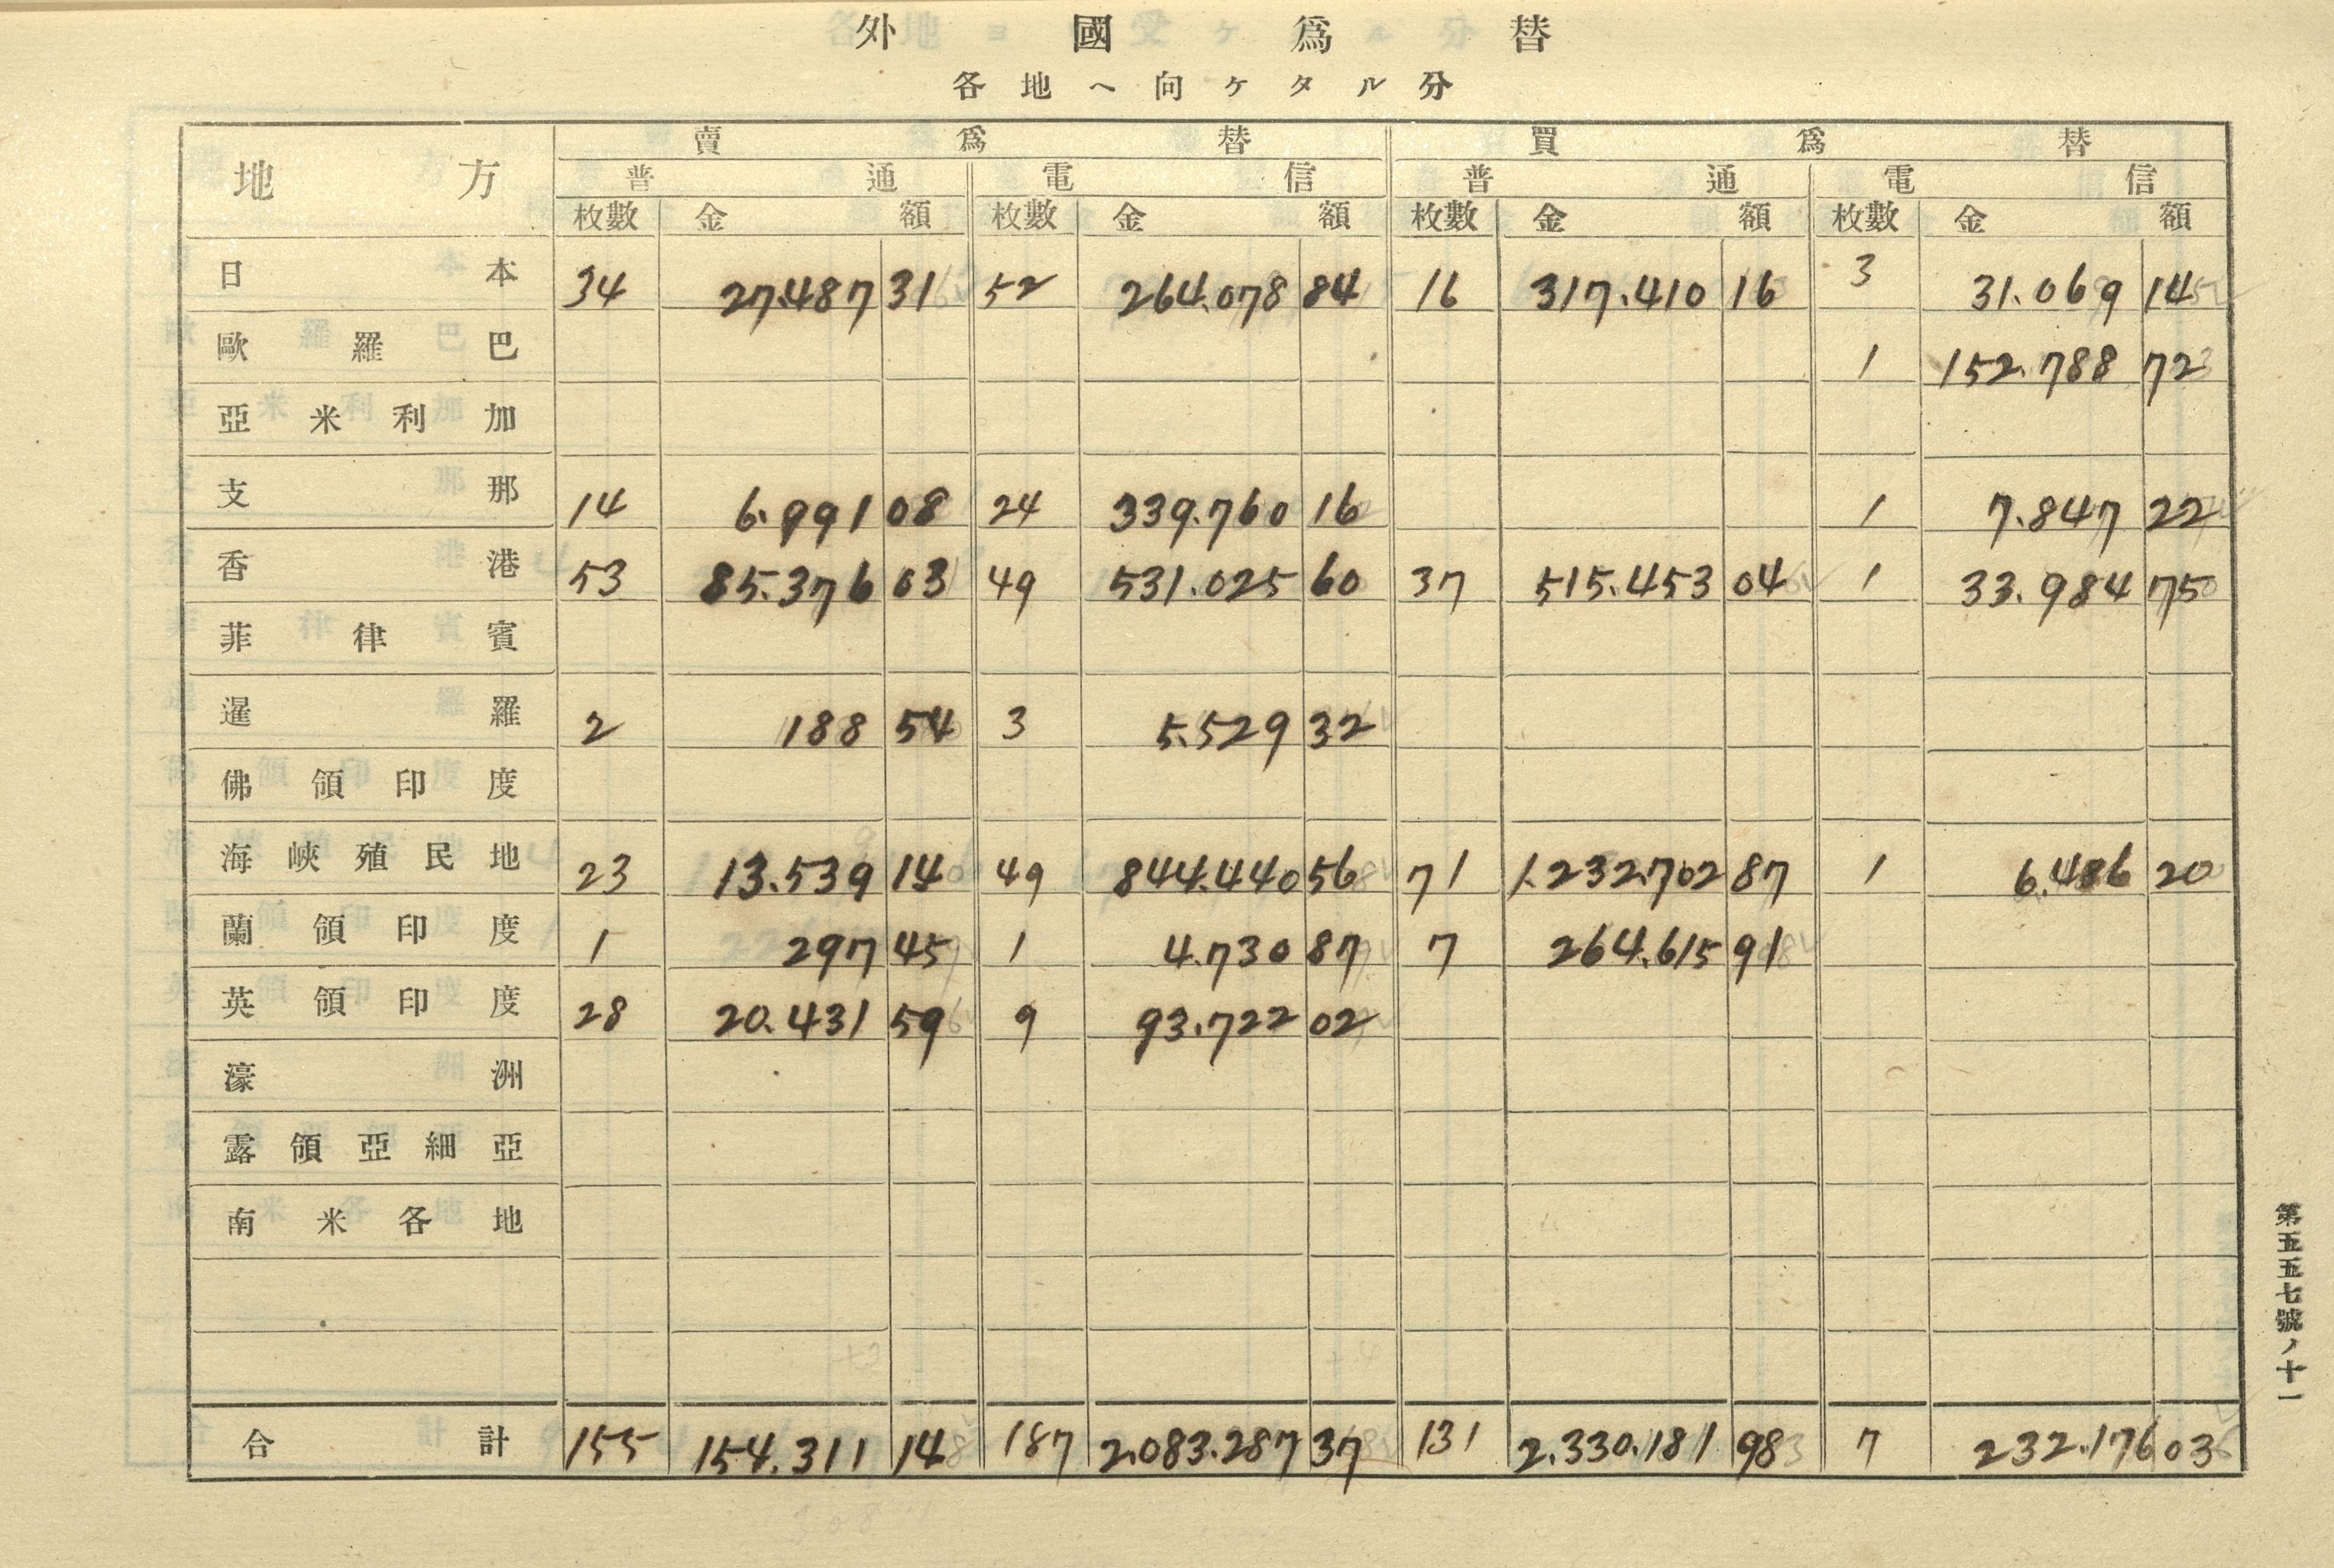 外國爲替
各地ヘ向ケタル分
地方 賣爲替 買爲替
普通 電信 普通 電信
枚數 金額 枚數 金額 枚數 金額 枚數 金額
日本 34 27.487 31 52 264.078 84 16 317.410 16 3 31.069 14
歐羅巴 1 152.788 72
亞米利加
支那 14 6.991 08 24 339.760 16 1 7.847 22
香港 53 85.376 03 49 531.025 60 37 515.453 04 1 33.984 75
菲律賓
暹羅 2 188 54 3 5.529 32
佛領印度
海峽殖民地 23 13.539 14 49 844.440 56 71 1.232.702 87 1 6.486 20
蘭領印度 1 297 45 1 4.730 87 7 264.615 91
英領印度 28 20.431 59 9 93.722 02
濠洲
露領亞細亞
南米各地
合計 155 154.311 14 187 2.083.287 37 131 2.330.181 98 7 232.176 03
第五五七號ノ十一